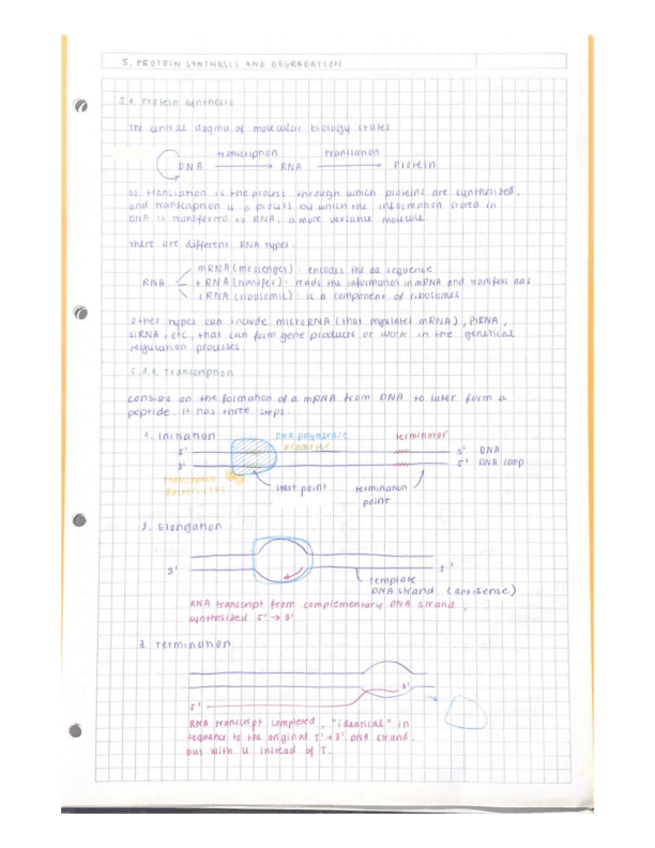 5. PROTEIN SYNTHESIS AND DEGRADATION
5.1. Protein synthesis
The central dogma of molecular biology states
transcription translation
DNA RNA Protein
so translation is the process through which proteins are synthesized,
and transcription is a process by which the information stored in
DNA is transferred to RNA, a more versatile molecule.
There are different RNA types:
mRNA (messenger): encodes the aa sequence
RNA tRNA (transfer): reads the information in mRNA and transfers aas
rRNA (ribosomic): is a component of ribosomes
Other types can include microRNA (that regulates mRNA), PiRNA,
siRNA, etc, that can form gene products or work in the genetical
regulation processes.
5.1.1. Transcription
consists on the formation of a mRNA from DNA to later form a
peptide. It has three steps.
1. Initiation DNA polymerase terminator
promoter
5' 3' DNA
3' 5' DNA comp
Transcription
factors
start point termination
point
2. Elongation
3' 5'
template
DNA strand (antisense)
RNA transcript from complementary DNA strand,
synthesized 5' → 3'
3. Termination
3'
5'
RNA transcript completed, "identical" in
sequence to the original 5' → 3' DNA strand,
but with U instead of T.